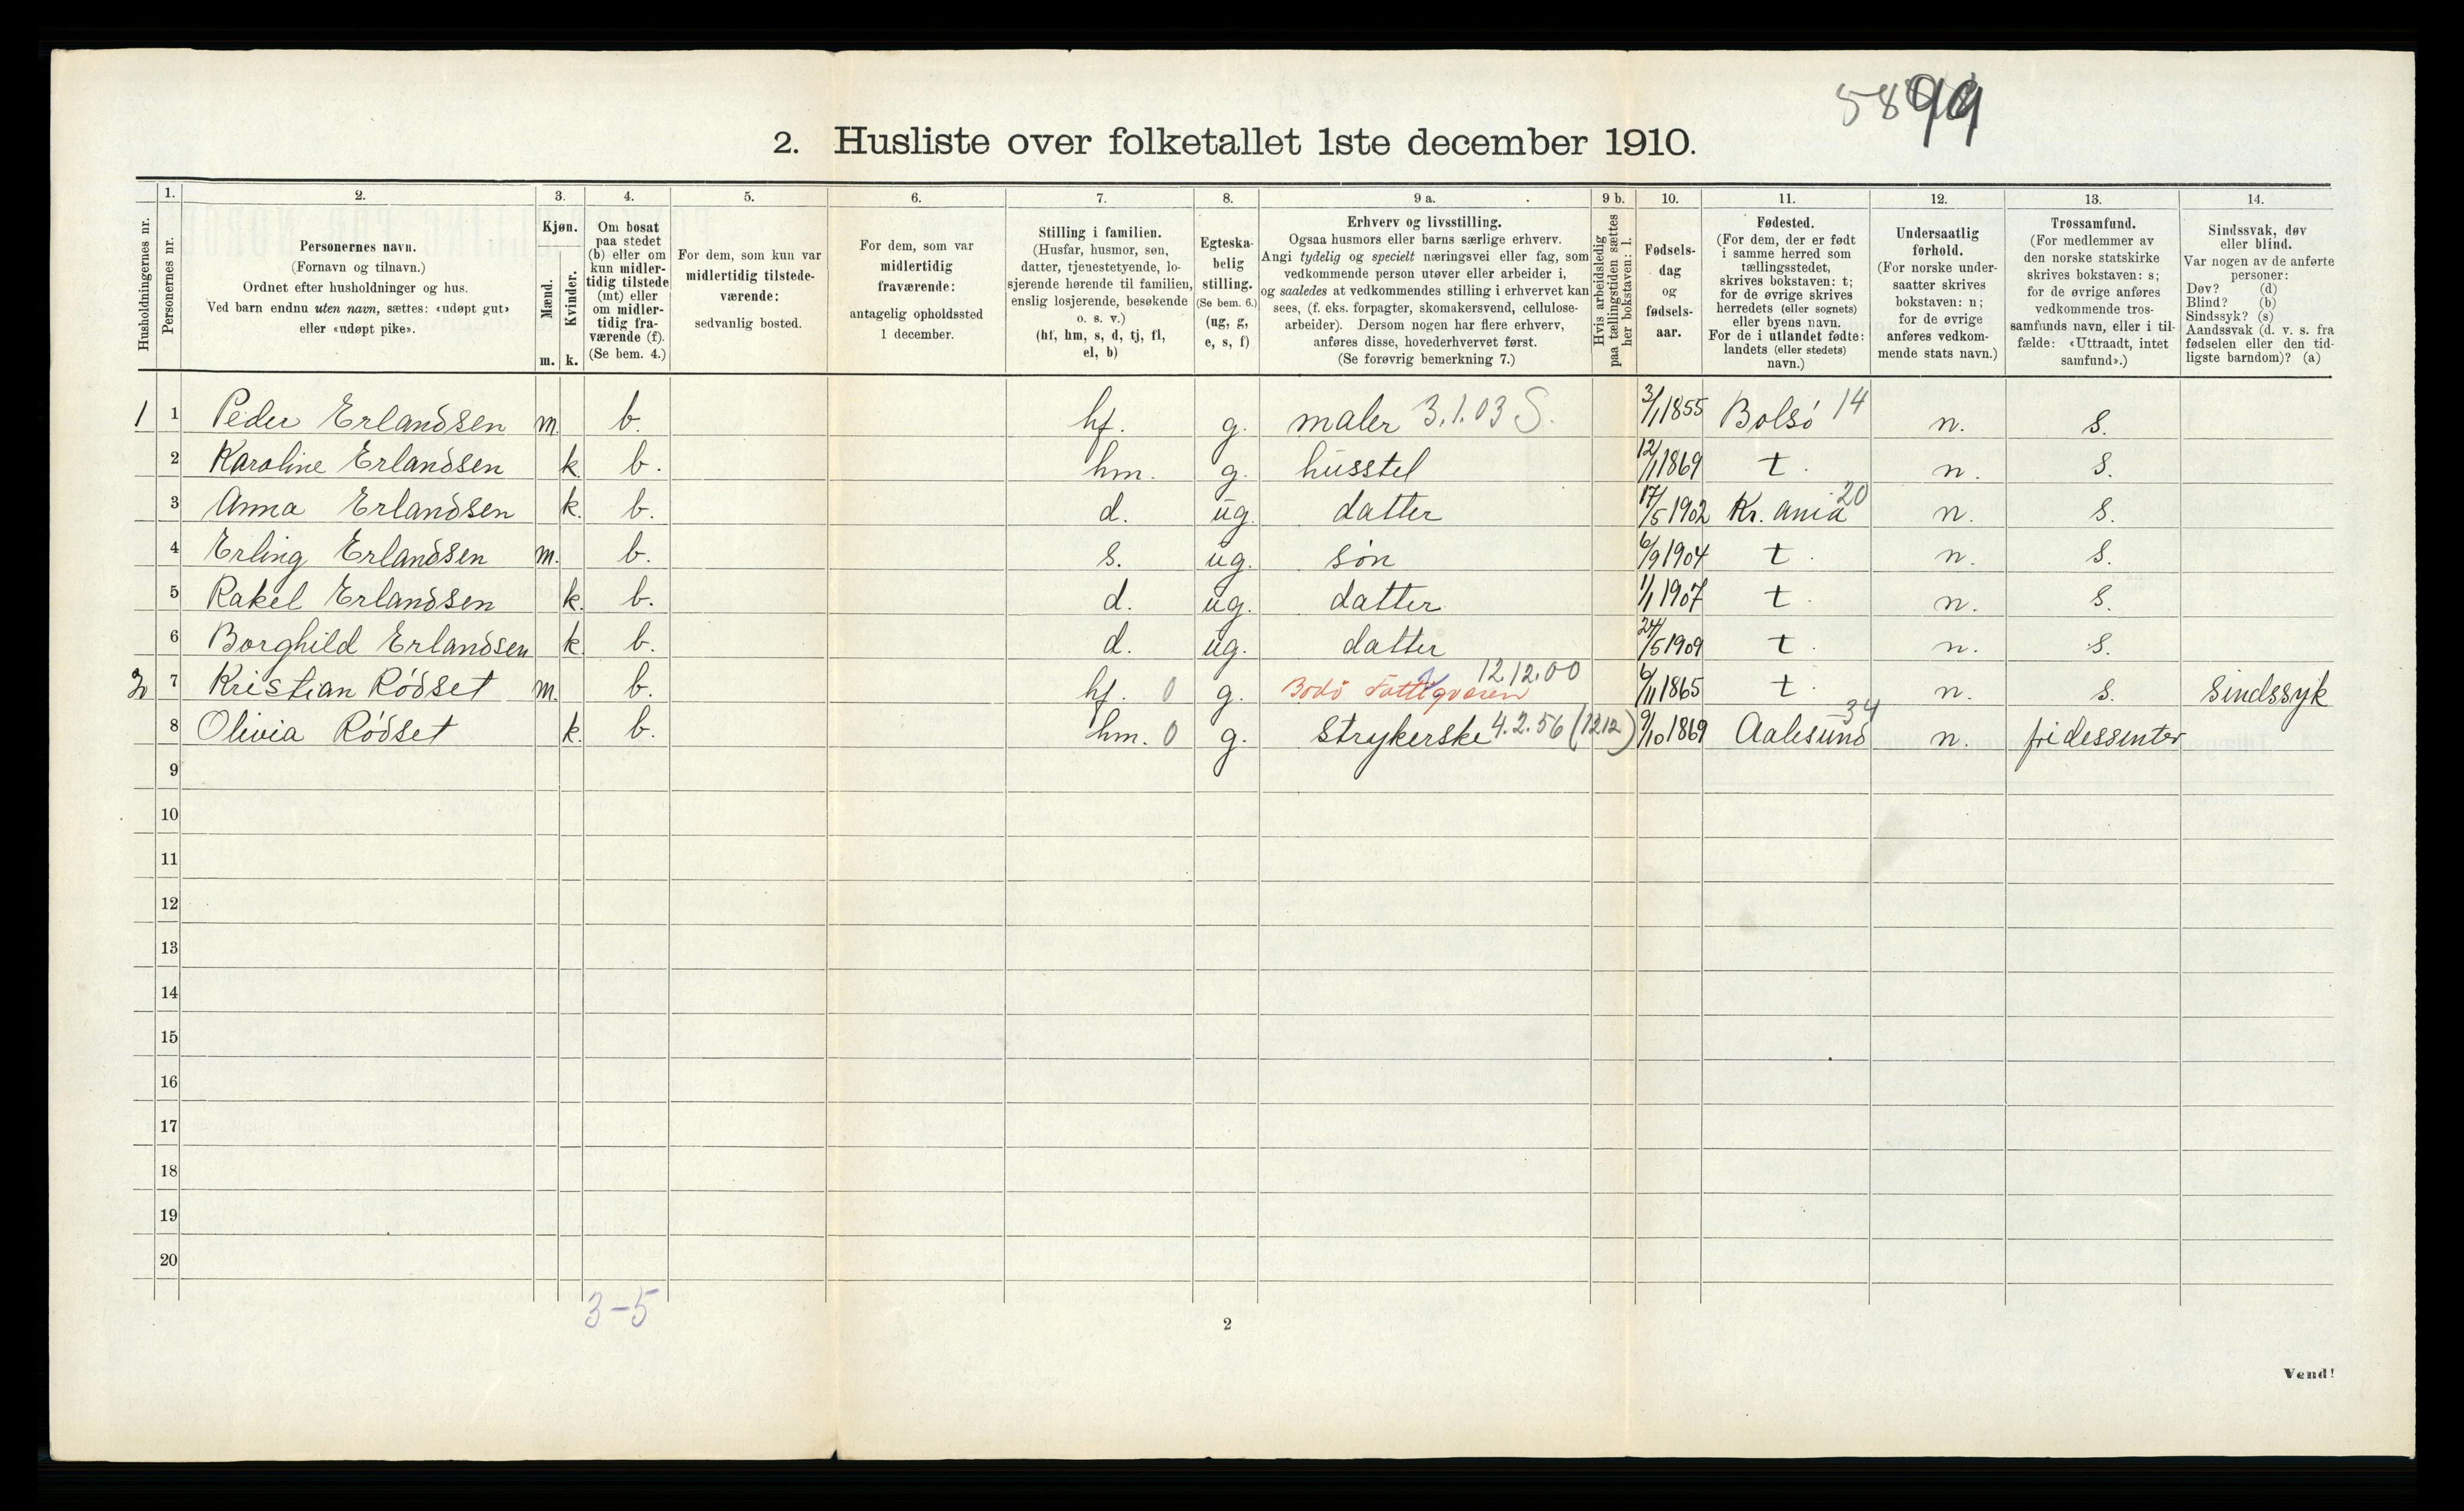 5899
2. Husliste over folketallet 1ste december 1910.
Husholdningernes nr.
1.
Personernes nr.
2.
Personernes navn.
(Fornavn og tilnavn.)
Ordnet efter husholdninger og hus.
Ved barn endnu uten navn, sættes: «udøpt gut»
eller «udøpt pike».
3.
Kjøn.
Mænd.
Kvinder.
m. k.
4.
Om bosat
paa stedet
(b) eller om
kun midler-
tidig tilstede
(mt) eller
om midler-
tidig fra-
værende (f).
(Se bem. 4.)
5.
For dem, som kun var
midlertidig tilstede-
værende:
sedvanlig bosted.
6.
For dem, som var
midlertidig
fraværende:
antagelig opholdssted
1 december.
7.
Stilling i familien.
(Husfar, husmor, søn,
datter, tjenestetyende, lo-
sjerende hørende til familien,
enslig losjerende, besøkende
o. s. v.)
(hf, hm, s, d, tj, fl,
el, b)
8.
Egteska-
belig
stilling.
(Se bem. 6.)
(ug, g,
e, s, f)
9 a.
Erhverv og livsstilling.
Ogsaa husmors eller barns særlige erhverv.
Angi tydelig og specielt næringsvei eller fag, som
vedkommende person utøver eller arbeider i,
og saaledes at vedkommendes stilling i erhvervet kan
sees, (f. eks. forpagter, skomakersvend, cellulose-
arbeider). Dersom nogen har flere erhverv,
anføres disse, hovederhvervet først.
(Se forøvrig bemerkning 7.)
9 b.
Hvis arbeidsledig
paa tællingstiden sættes
her bokstaven: l.
10.
Fødsels-
dag
og
fødsels-
aar.
11.
Fødested.
(For dem, der er født
i samme herred som
tællingsstedet,
skrives bokstaven: t;
for de øvrige skrives
herredets (eller sognets)
eller byens navn.
For de i utlandet fødte:
landets (eller stedets)
navn.)
12.
Undersaatlig
forhold.
(For norske under-
saatter skrives
bokstaven: n;
for de øvrige
anføres vedkom-
mende stats navn.)
13.
Trossamfund.
(For medlemmer av
den norske statskirke
skrives bokstaven: s;
for de øvrige anføres
vedkommende tros-
samfunds navn, eller i til-
fælde: «Uttraadt, intet
samfund».)
14.
Sindssvak, døv
eller blind.
Var nogen av de anførte
personer:
Døv? (d)
Blind? (b)
Sindssyk? (s)
Aandssvak (d. v. s. fra
fødselen eller den tid-
ligste barndom)? (a)
1 1 Peder Erlandsen m. b. hf. g. maler 3.1.03 S. 3/1 1855 Bolsó 14 n. s.
2 Karoline Erlandsen k b. hm. g. husstel 12/1 1869 t. n. s.
3 Anna Erlandsen k. b. d. ug. datter 17/5 1902 Kr. ania 20 n. s.
4 Erling Erlandsen m. b. s. ug. søn 6/9 1904 t. n. s.
5 Rakel Erlandsen k. b. d. ug. datter 1/1 1907 t. n. s.
6 Borghild Erlandsen k. b. d. ug. datter 24/5 1909 t. n. s.
2 7 KristianRódset m. b. hf. 0 g. Fattigvæsen 12.12.00 6/11 1865 t. n. s. Sindssyk
8 Olivia Ródset k. b. hm. 0 g. Strykerske 4.2.56 (1212) 9/10 1869 Aalesund 34 n. fridessenter
9
10
11
12
13
14
15
16
17
18
19
20
3-5
2
Vend!